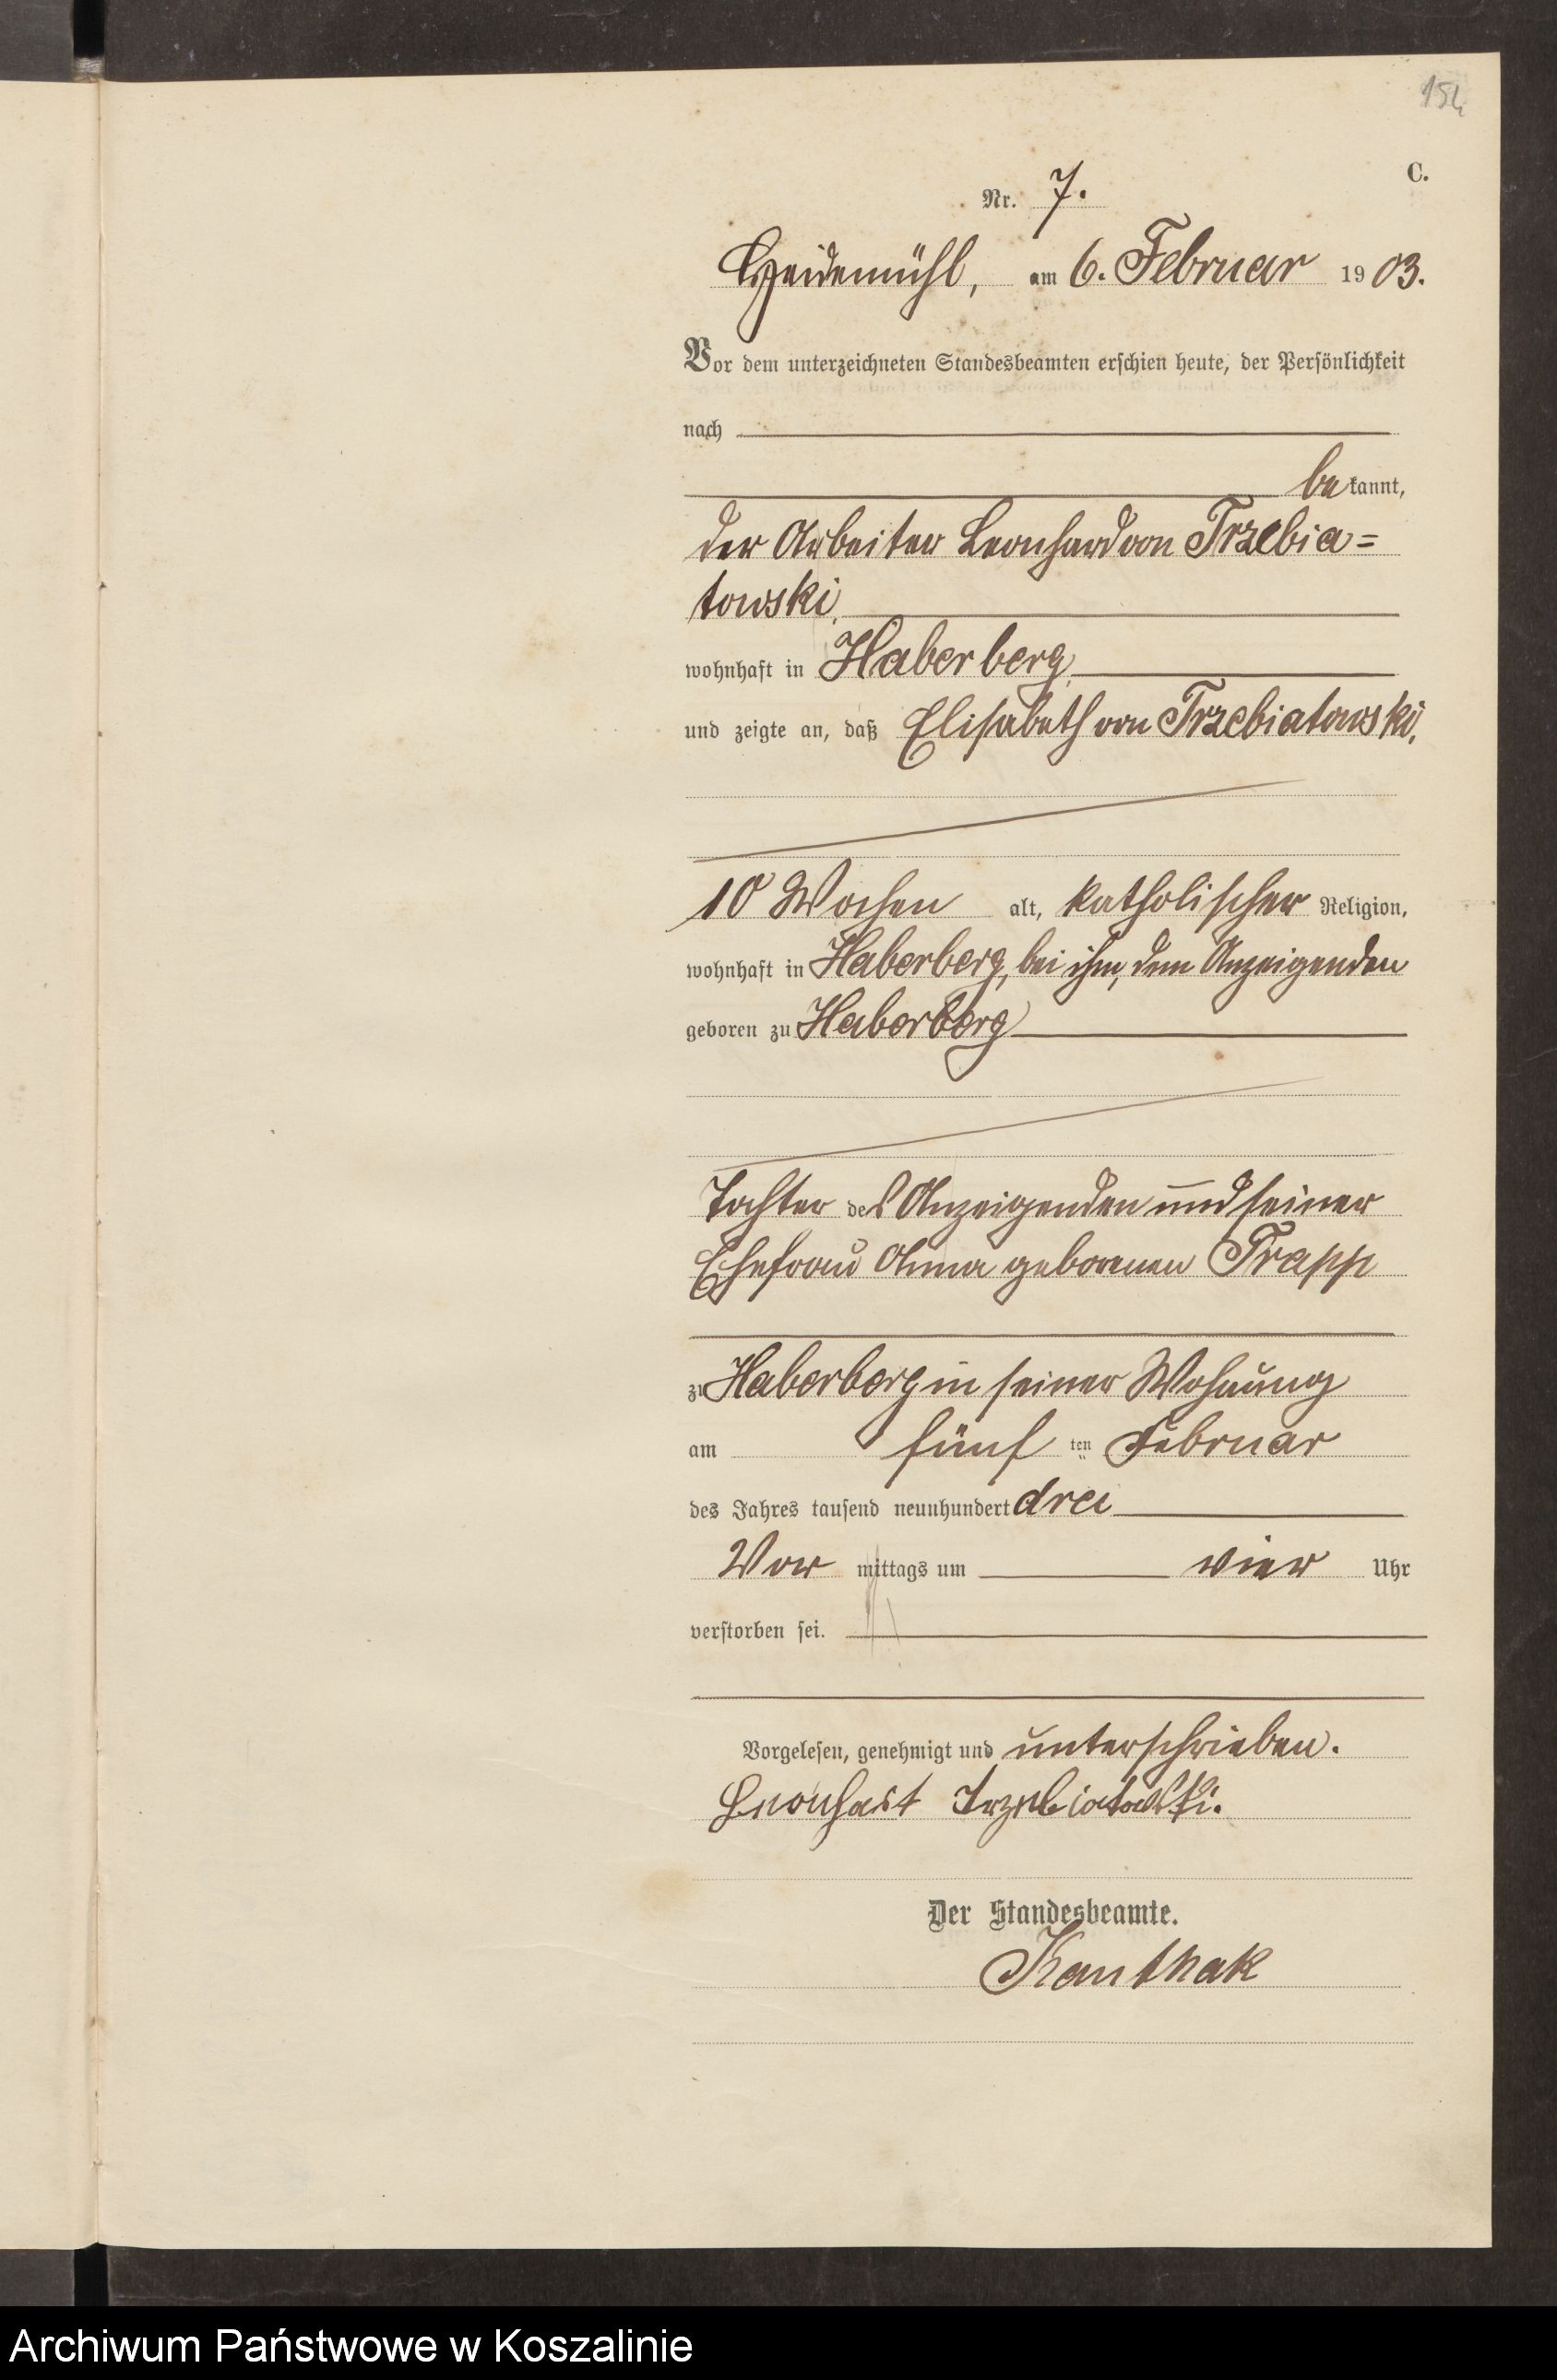 154
C.
Nr. 7.
Heidemühl, am 6. Februar 1903.
Vor dem unterzeichneten Standesbeamten erschien heute, der Persönlichkeit
nach
bekannt,
der Arbeiter Leonhard von Trzebia=
towski,
wohnhaft in Haberberg,
und zeigte an, daß Elisabeth von Trzebiatowski,
10 Wochen alt, katholischer Religion,
wohnhaft in Haberberg, bei ihm, dem Anzeigenden
geboren zu Haberberg
Tochter des Anzeigenden und seiner
Ehefrau Anna geborenen Trapp
zu Haberberg in seiner Wohnung
am fünften Februar
des Jahres tausend neunhundert drei
Vormittags um vier Uhr
verstorben sei.
Vorgelesen, genehmigt und unterschrieben.
Leonhart Trzebiatoski.
Der Standesbeamte.
Kauthak
Archiwum Państwowe w Koszalinie